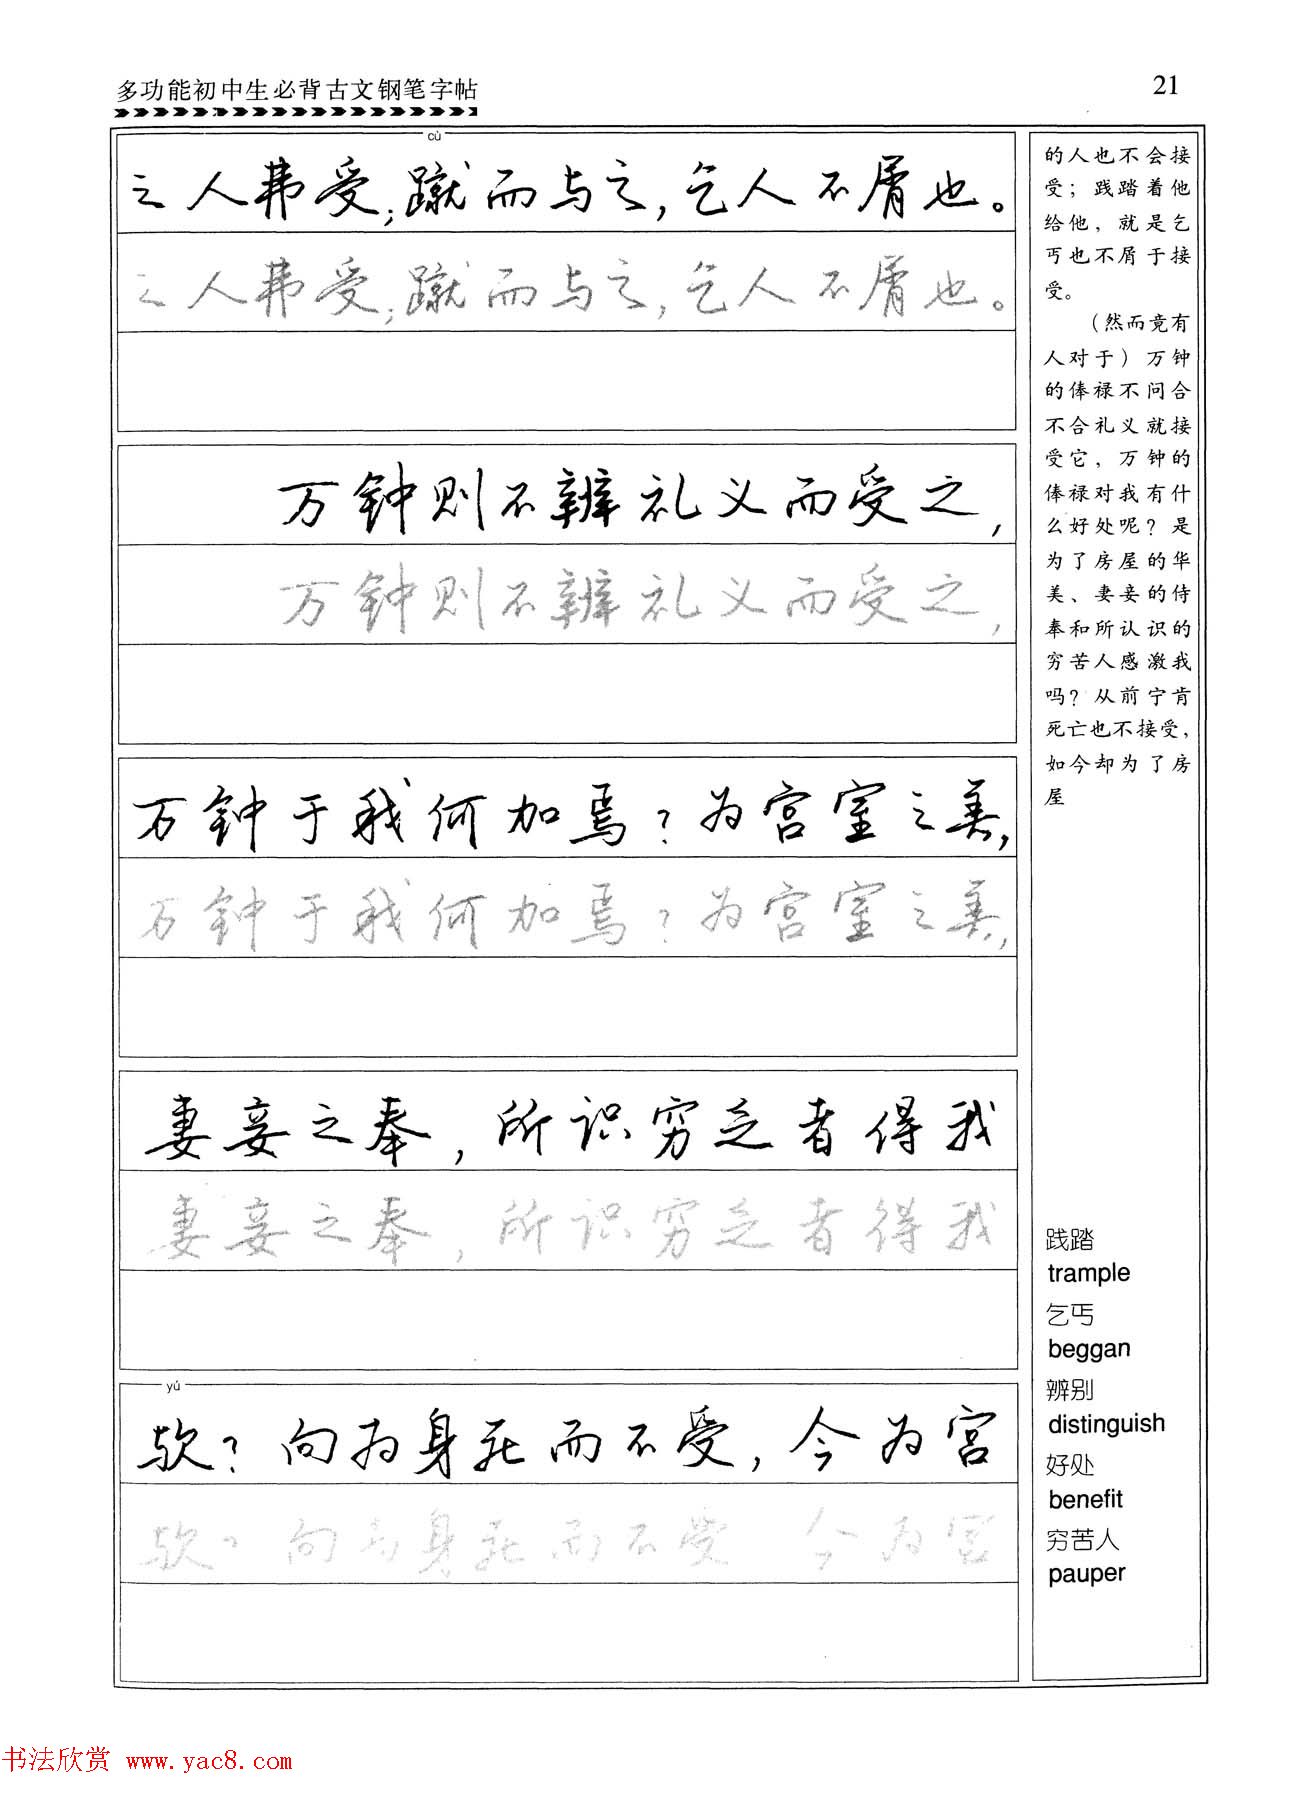 多功能初中生必背古文钢笔字帖
21
cù
之人弗受;蹴而与之,乞人不屑也。
之人弗受;蹴而与之,乞人不屑也。
万钟则不辨礼义而受之,
万钟则不辨礼义而受之,
万钟于我何加焉?为宫室之美,
万钟于我何加焉?为宫室之美,
妻妾之奉,所识穷乏者得我
妻妾之奉,所识穷乏者得我
yú
欤?向为身死而不受,今为宫
欤?向为身死而不受 今为宫
的人也不会接
受;践踏着他
给他,就是乞
丐也不屑于接
受。
(然而竟有
人对于)万钟
的俸禄不问合
不合礼义就接
受它,万钟的
俸禄对我有什
么好处呢?是
为了房屋的华
美、妻妾的侍
奉和所认识的
穷苦人感激我
吗?从前宁肯
死亡也不接受,
如今却为了房
屋
践踏
trample
乞丐
beggan
辨别
distinguish
好处
benefit
穷苦人
pauper
书法欣赏 www.yac8.com